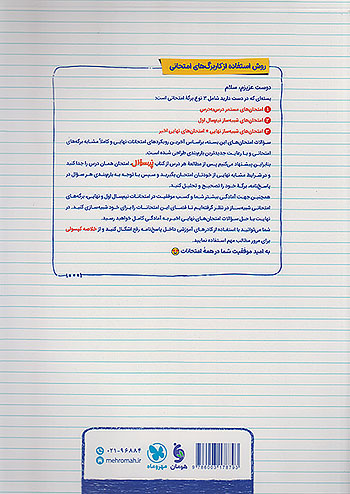 روش استفاده از کاربرگ‌های امتحانی
دوست عزیزم، سلام
بسته‌ای که در دست دارید شامل ۳ نوع برگهٔ امتحانی است:
۱ امتحان‌های مستمر درس‌به‌درس
۲ امتحان‌های شبه‌ساز نیم‌سال اول
۳ امتحان‌های شبه‌ساز نهایی + امتحان‌های نهایی اخیر
سؤالات امتحان‌های این بسته، براساس آخرین رویکردهای امتحانات نهایی و کاملاً مشابه برگه‌های
امتحانی و با رعایت جدیدترین بارم‌بندی طراحی شده است.
بنابراین پیشنهاد می‌کنیم پس از مطالعهٔ هر درس از کتاب پُرسؤال، امتحان همان درس را جدا کنید
و در شرایط مشابه نهایی از خودتان امتحان بگیرید و سپس با توجه به بارم‌بندی هر سؤال در
پاسخ‌نامه، برگهٔ خود را تصحیح و تحلیل کنید.
همچنین جهت آمادگی بیشتر شما و کسب موفقیت در امتحانات نیم‌سال اول و نهایی، برگه‌های
امتحانی شبه‌ساز در نظر گرفته‌ایم تا فضای این امتحانات را برای خود شبیه‌سازی کنید. در
نهایت با حل سؤالات امتحان‌های نهایی اخیر به آمادگی کامل خواهید رسید.
شما می‌توانید با استفاده از کادرهای آموزشی داخل پاسخ‌نامه رفع اشکال کنید و از خلاصه کپسولی
برای مرور مطالب مهم استفاده نمایید.
به امید موفقیت شما در همهٔ امتحانات
۰۲۱-۹۶۸۸۴
mehromah.ir
مهروماه
هومان